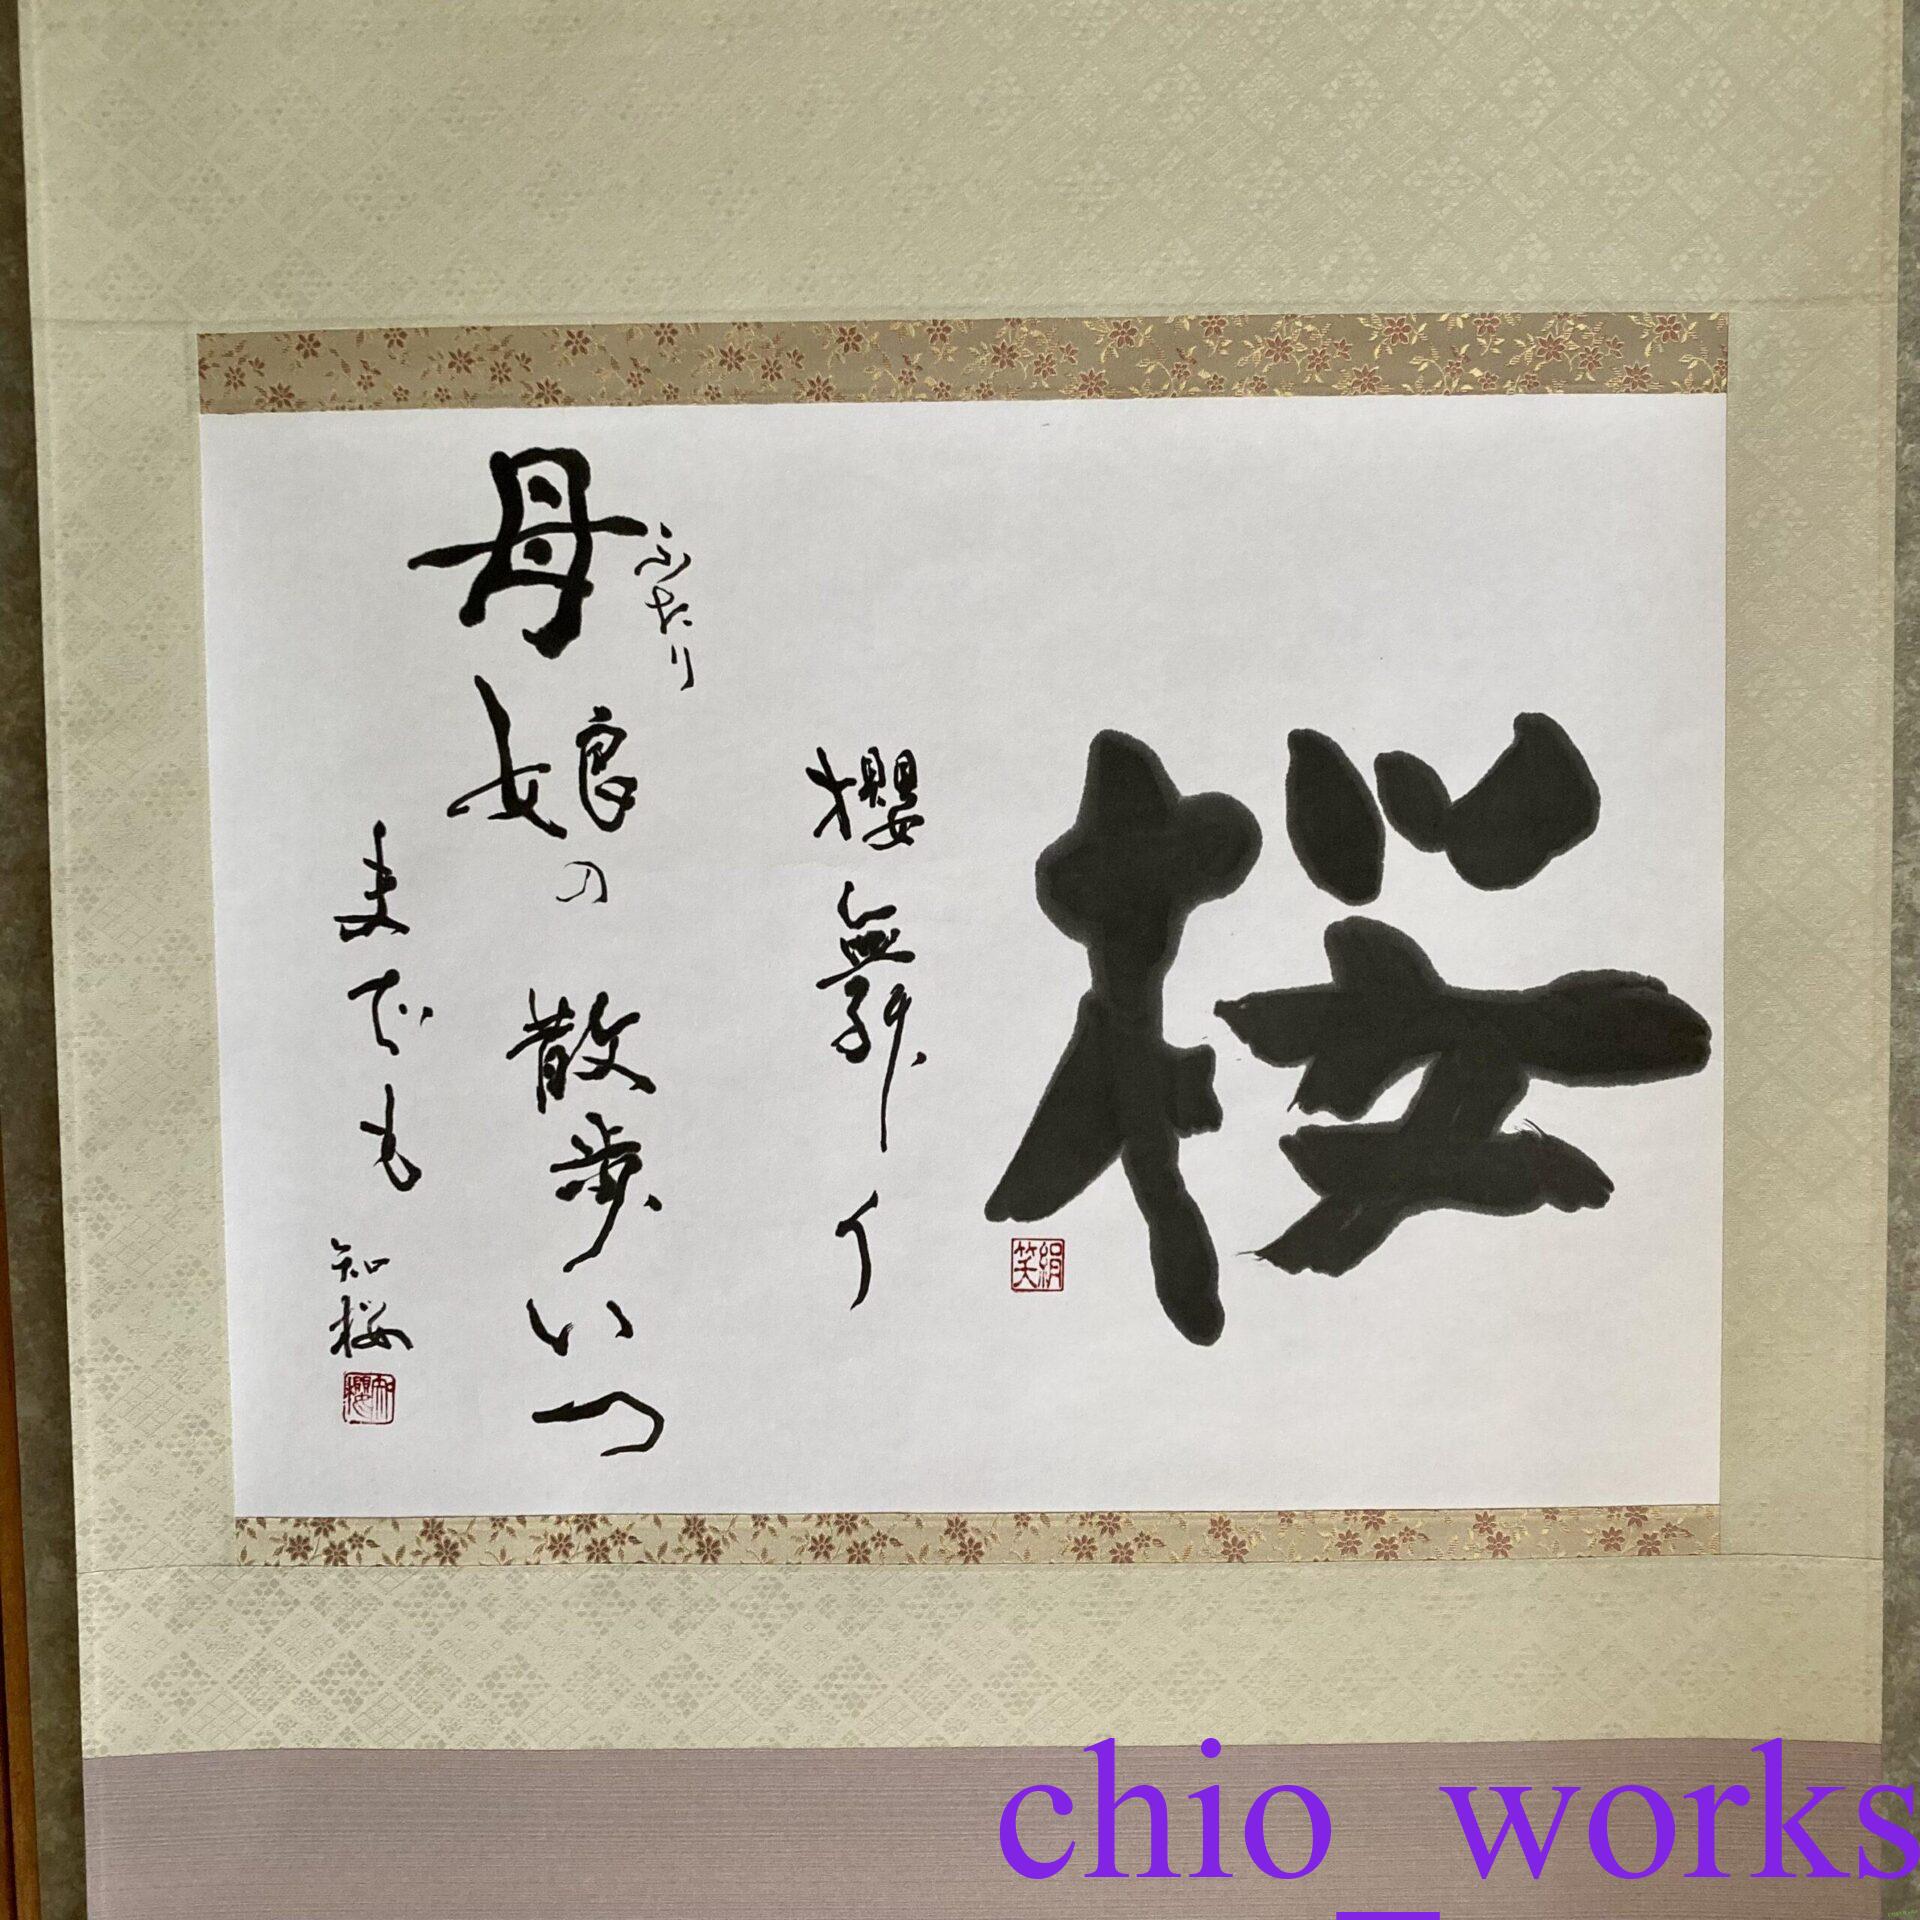 桜
絹笑
櫻舞イ
ふたり
母娘の散歩いつ
までも
知桜
知櫻
chio_works